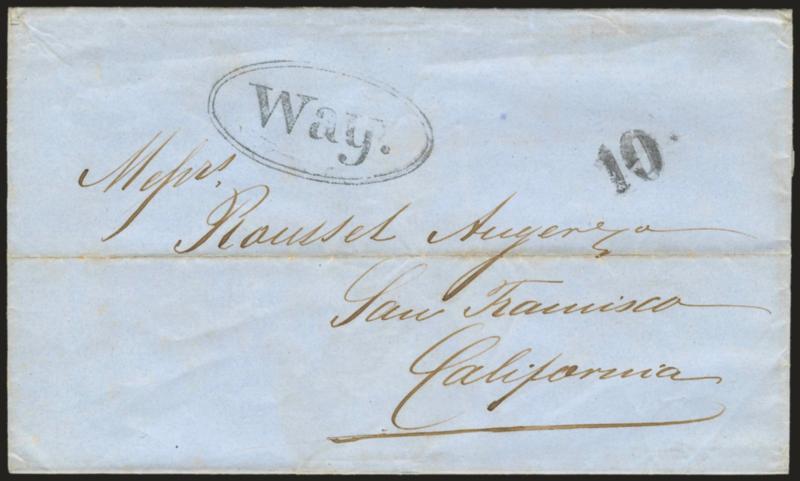 Way.
10
Messrs
Roussel Auger & Co
San Francisco
California